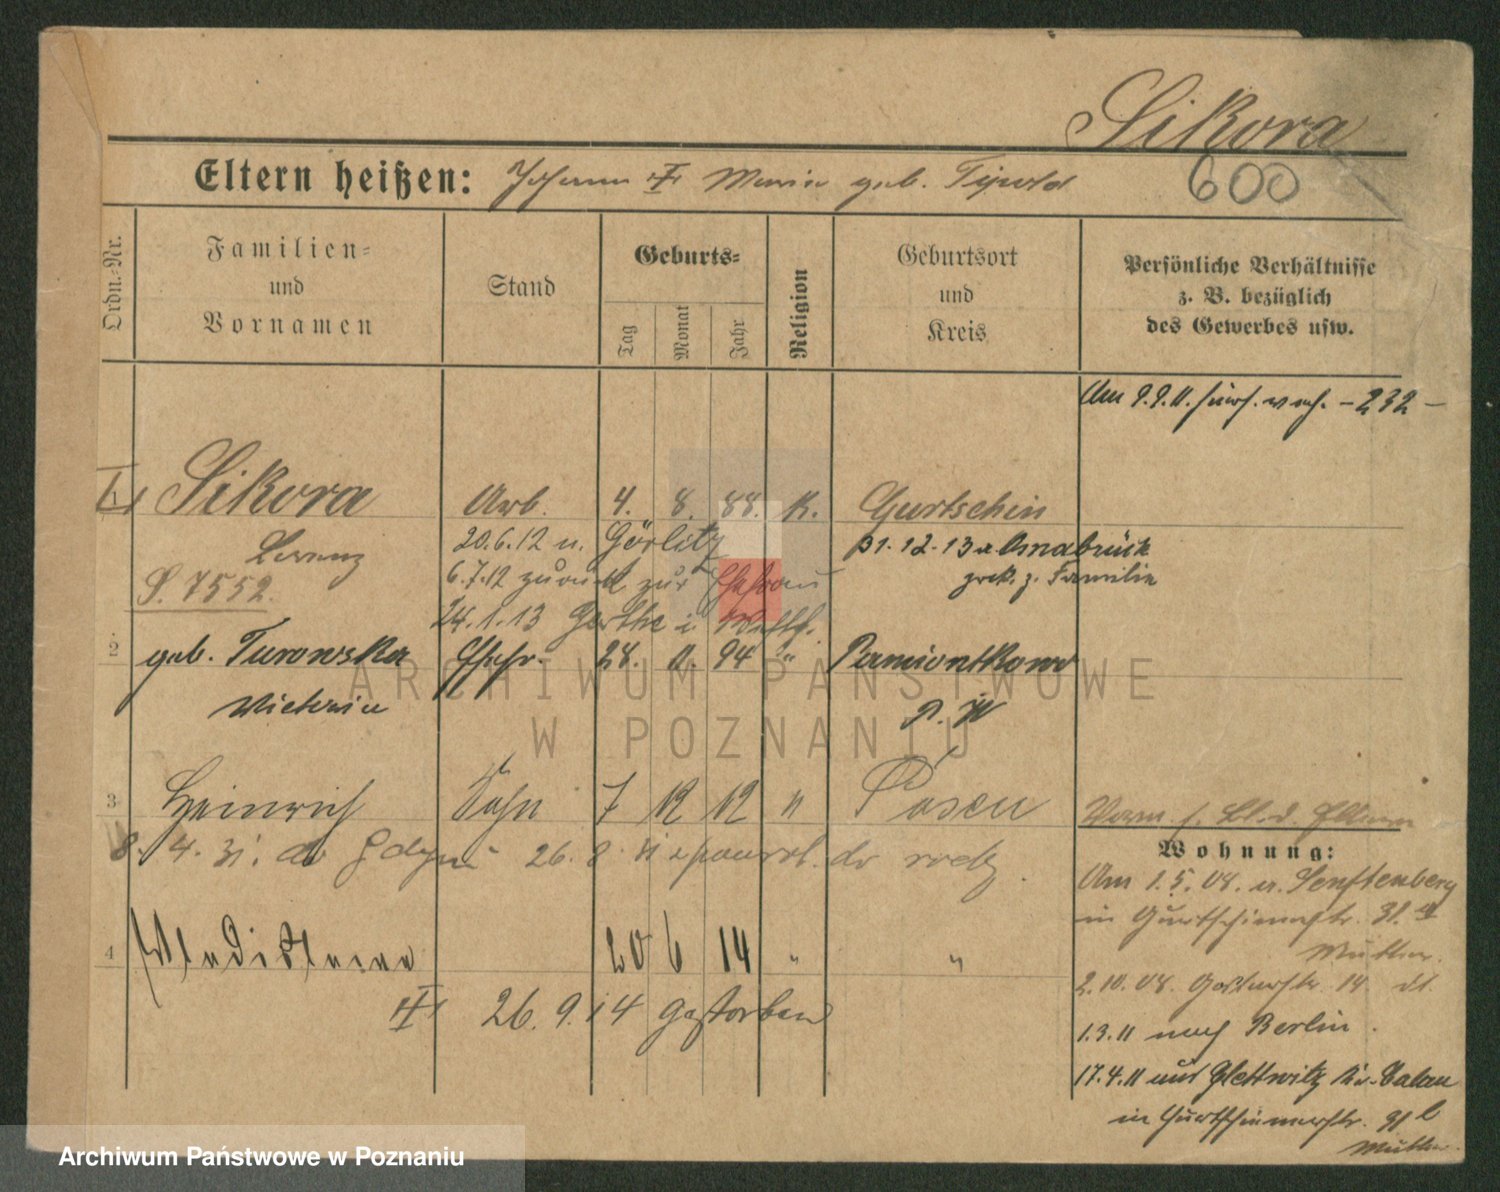 Sikora
600
Eltern heißen: Johann Marie geb.
Ordn.-Nr.
Familien-
und
Vornamen
Stand
Geburts-
Tag
Monat
Jahr
Religion
Geburtsort
und
Kreis
Persönliche Verhältnisse
z. B. bezüglich
des Gewerbes usw.
Am 9.9.11. – 232 –
1 Sikora Arb. 4. 8. 88. K. Gurtschin
Lorenz 20.6.12 n. Görlitz 31.12.13 n. Osnabrück
S. 7552. 6.7.12 zurück zur Ehefrau zrck. z. Familie
24.1.13 Gerthe i. Westf.
2 geb. Turowska Ehefr. 28. 11. 94 " Pamiontkowo
Victoria P. W
3 Heinrich Sohn 7 12 12 " Posen
8. 4. 31. do Gdyni 26. 8. 31 z powrot. do rodz.
4 Wladislawa 20 6 14 " "
26. 9. 14 gestorben
Wohnung:
Am 1.5.08. n. Senftenberg
in Gurtschinerstr. 31.
Mutter.
2.10.08. 14
1.3.11 nach Berlin.
17.4.11 aus Kr. Calau
in Gurtschinerstr. 31
Mutter.
ARCHIWUM PAŃSTWOWE
W POZNANIU
Archiwum Państwowe w Poznaniu